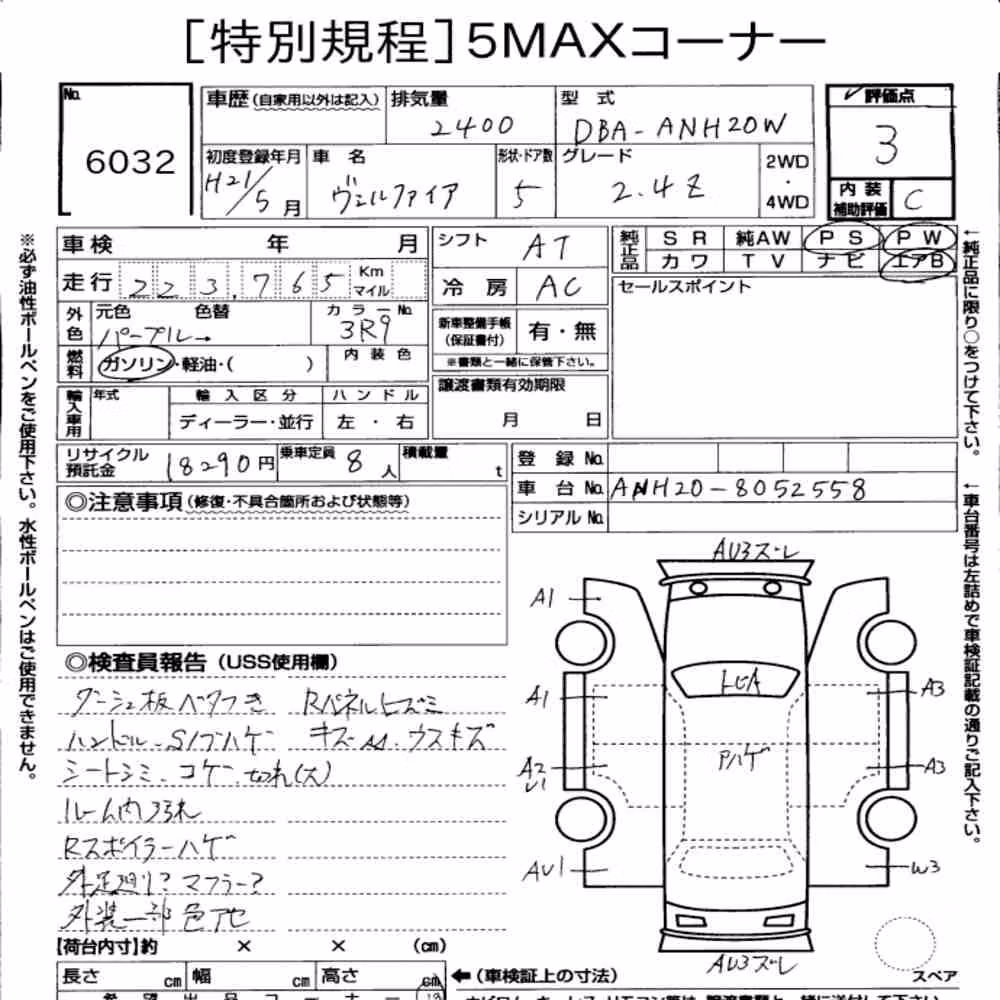 ［特別規程］5MAXコーナー
No. 6032
車歴（自家用以外は記入）
排気量 2400
型式 DBA-ANH20W
評価点 3
初度登録年月 H21/5月
車名 ヴェルファイア
形状・ドア数 5
グレード 2.4Z
2WD・4WD
内装補助評価 C
車検 年 月
走行 223,765 Km マイル
シフト AT
冷房 AC
純正品 SR 純AW PS PW
カワ TV ナビ エアB
セールスポイント
外色 元色 パープル→ 色替
カラーNo. 3R9
燃料 ガソリン・軽油・（ ）
内装色
新車整備手帳（保証書付） 有・無
※書類と一緒に保管下さい。
譲渡書類有効期限
月 日
輸入車用 年式 輸入区分 ハンドル
ディーラー・並行 左・右
リサイクル預託金 18290円
乗車定員 8人
積載量 t
登録No.
車台No. ANH20-8052558
シリアルNo.
◎注意事項（修復・不具合箇所および状態等）
◎検査員報告（USS使用欄）
ダーシュ板ベタつき Rパネルヒズミ
ハンドル・S/ブハゲ キズ・A・ウスキズ
シートシミ・コゲ・切れ(大)
ルーム内ヨゴレ
Rスポイラーハゲ
外足廻り? マフラー?
外装一部色アセ
【荷台内寸】約 × × （cm）
長さ cm 幅 cm 高さ cm
←（車検証上の寸法）
AU3ズレ
A1
トビA
A1
A3
Pハゲ
A2
U1
A3
AU1
W3
AU3ズレ
スペア
※必ず油性ボールペンをご使用下さい。水性ボールペンはご使用できません。
←純正品に限り○をつけて下さい。
←車台番号は左詰めで車検証記載の通りご記入下さい。